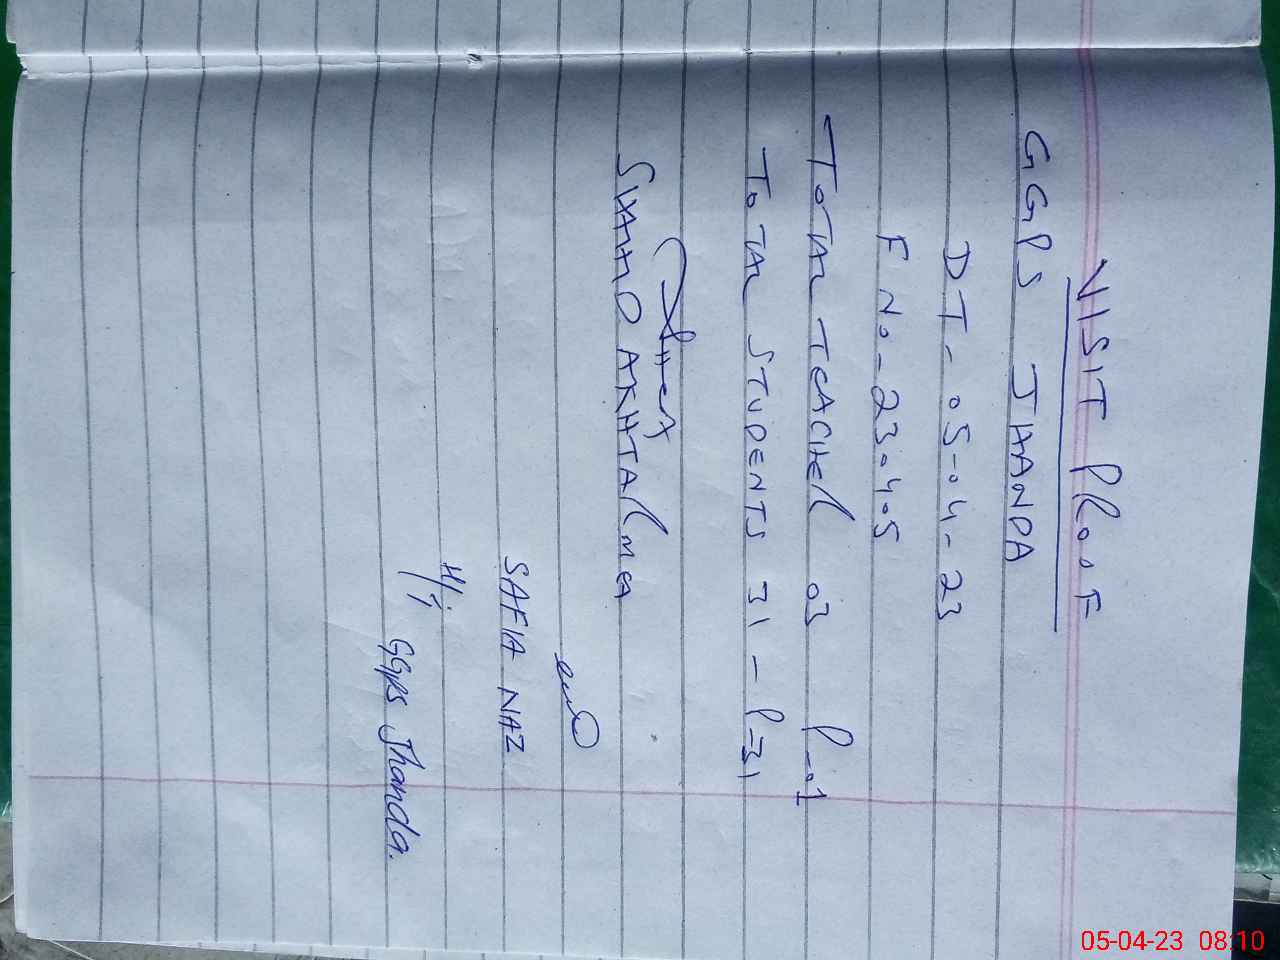 VISIT PROOF
GGPS JHANDA
DT-05-04-23
F No-23405
TOTAL TEACHER 03 P-01
TOTAL STUDENTS 31 - P-31
AKHTAR MEA
SAFIA NAZ
H/T
GGPS Jhanda.
05-04-23 08:10